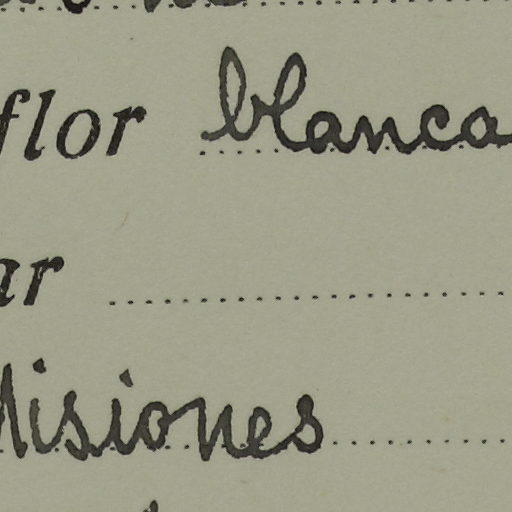 flor blanca
ar
Misiones